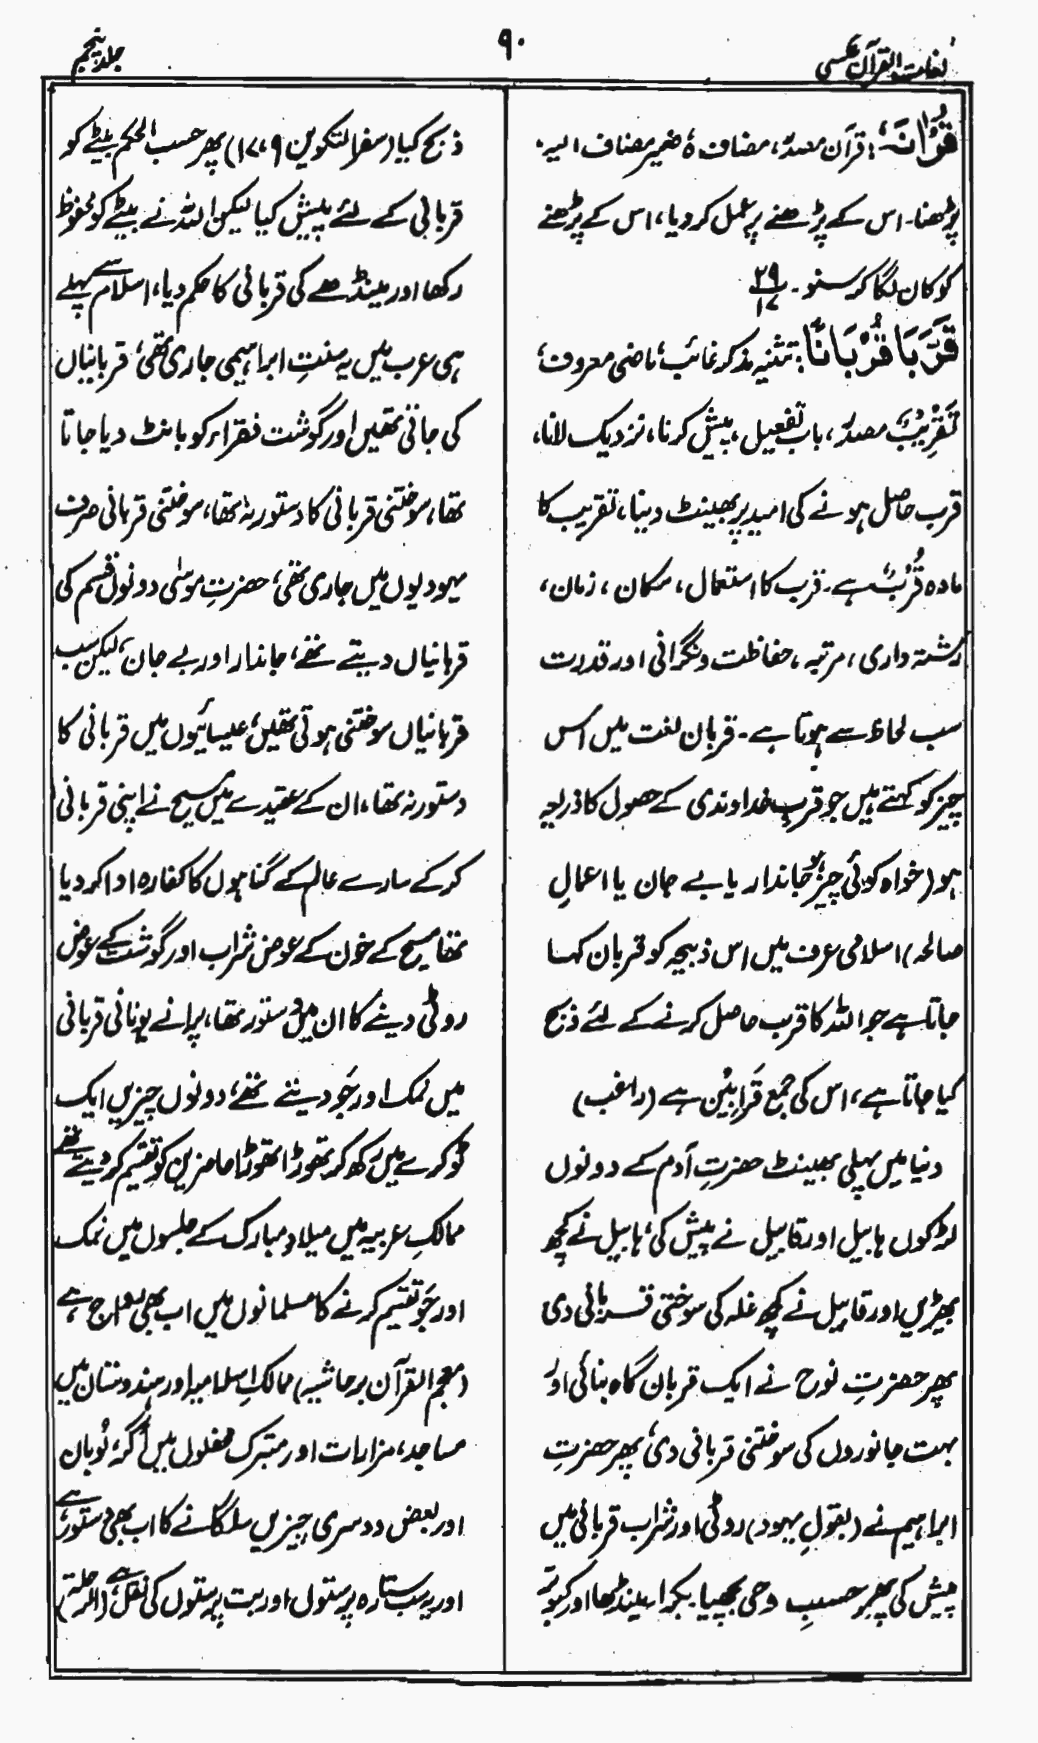 لغات القرآن عکسی
۹۰
جلد پنجم
قُرْاٰنَہٗ؛ قرآن مصدر، مضاف ہٗ ضمیر مضاف الیہ،
پڑھنا۔ اس کے پڑھنے پر عمل کر دیا، اس کے پڑھنے
کو کان لگا کر سنو۔ ۲۹/۱۷
قَرَّبَا قُرْبَانًا: تثنیہ مذکر غائب، ماضی معروف،
تَقْرِیْبٌ مصدر، باب تفعیل، پیش کرنا، نزدیک لانا،
قرب حاصل ہونے کی امید پر بھینٹ دینا، تقریب کا
مادہ قُرْبٌ ہے۔ قرب کا استعمال، مکان، زمان،
رشتہ داری، مرتبہ، حفاظت و نگرانی اور قدرت
سب لحاظ سے ہوتا ہے۔ قربان لغت میں اس
چیز کو کہتے ہیں جو قربِ خداوندی کے حصول کا ذریعہ
ہو (خواہ کوئی چیز ہو جاندار یا بے جان یا اعمالِ
صالحہ) اسلامی عرف میں اس ذبیحہ کو قربان کہا
جاتا ہے جو اللہ کا قرب حاصل کرنے کے لئے ذبح
کیا جاتا ہے، اس کی جمع قَرَابِیْن ہے (راغب)
دنیا میں پہلی بھینٹ حضرتِ آدم کے دونوں
لڑکوں ہابیل اور قابیل نے پیش کی، ہابیل نے کچھ
بھیڑیں اور قابیل نے کچھ غلہ کی سوختنی قربانی دی
پھر حضرتِ نوح نے ایک قربان گاہ بنائی اور
بہت جانوروں کی سوختنی قربانی دی، پھر حضرتِ
ابراہیم نے (بقولِ یہود) روٹی اور شراب قربانی میں
پیش کی پھر حسبِ وحی بچھیا بکرا، مینڈھا اور کبوتر
ذبح کیا (سفر التکوین ۱۷،۹) پھر حسب الحکم بیٹے کو
قربانی کے لئے پیش کیا لیکن اللہ نے بیٹے کو محفوظ
رکھا اور مینڈھے کی قربانی کا حکم دیا، اسلام سے پہلے
ہی عرب میں یہ سنتِ ابراہیمی جاری تھی، قربانیاں
کی جاتی تھیں اور گوشت فقراء کو بانٹ دیا جاتا
تھا، سوختنی قربانی کا دستور نہ تھا، سوختنی قربانی صرف
یہودیوں میں جاری تھی، حضرتِ موسٰی دونوں قسم کی
قربانیاں دیتے تھے، جاندار اور بے جان، لیکن سب
قربانیاں سوختنی ہوتی تھیں، عیسائیوں میں قربانی کا
دستور نہ تھا، ان کے عقیدے میں مسیح نے اپنی قربانی
کر کے سارے عالم کے گناہوں کا کفارہ ادا کر دیا
تھا مسیح کے خون کے عوض شراب اور گوشت کے عوض
روٹی دینے کا ان میں دستور تھا، پرانے یونانی قربانی
میں نمک اور جَو دیتے تھے، دونوں چیزیں ایک
ٹوکرے میں رکھ کر تھوڑا تھوڑا حاضرین کو تقسیم کر دیتے تھے
ممالکِ عربیہ میں میلادِ مبارک کے جلسوں میں نمک
اور جَو تقسیم کرنے کا مسلمانوں میں اب بھی رواج ہے
(معجم القرآن برحاشیہ) ممالکِ اسلامیہ اور ہندوستان میں
مساجد، مزارات اور متبرک محفلوں میں اگر، لُوبان
اور بعض دوسری چیزیں سلگانے کا اب بھی دستور ہے
اور یہ سب ستارہ پرستوں اور بت پرستوں کی نقل ہے